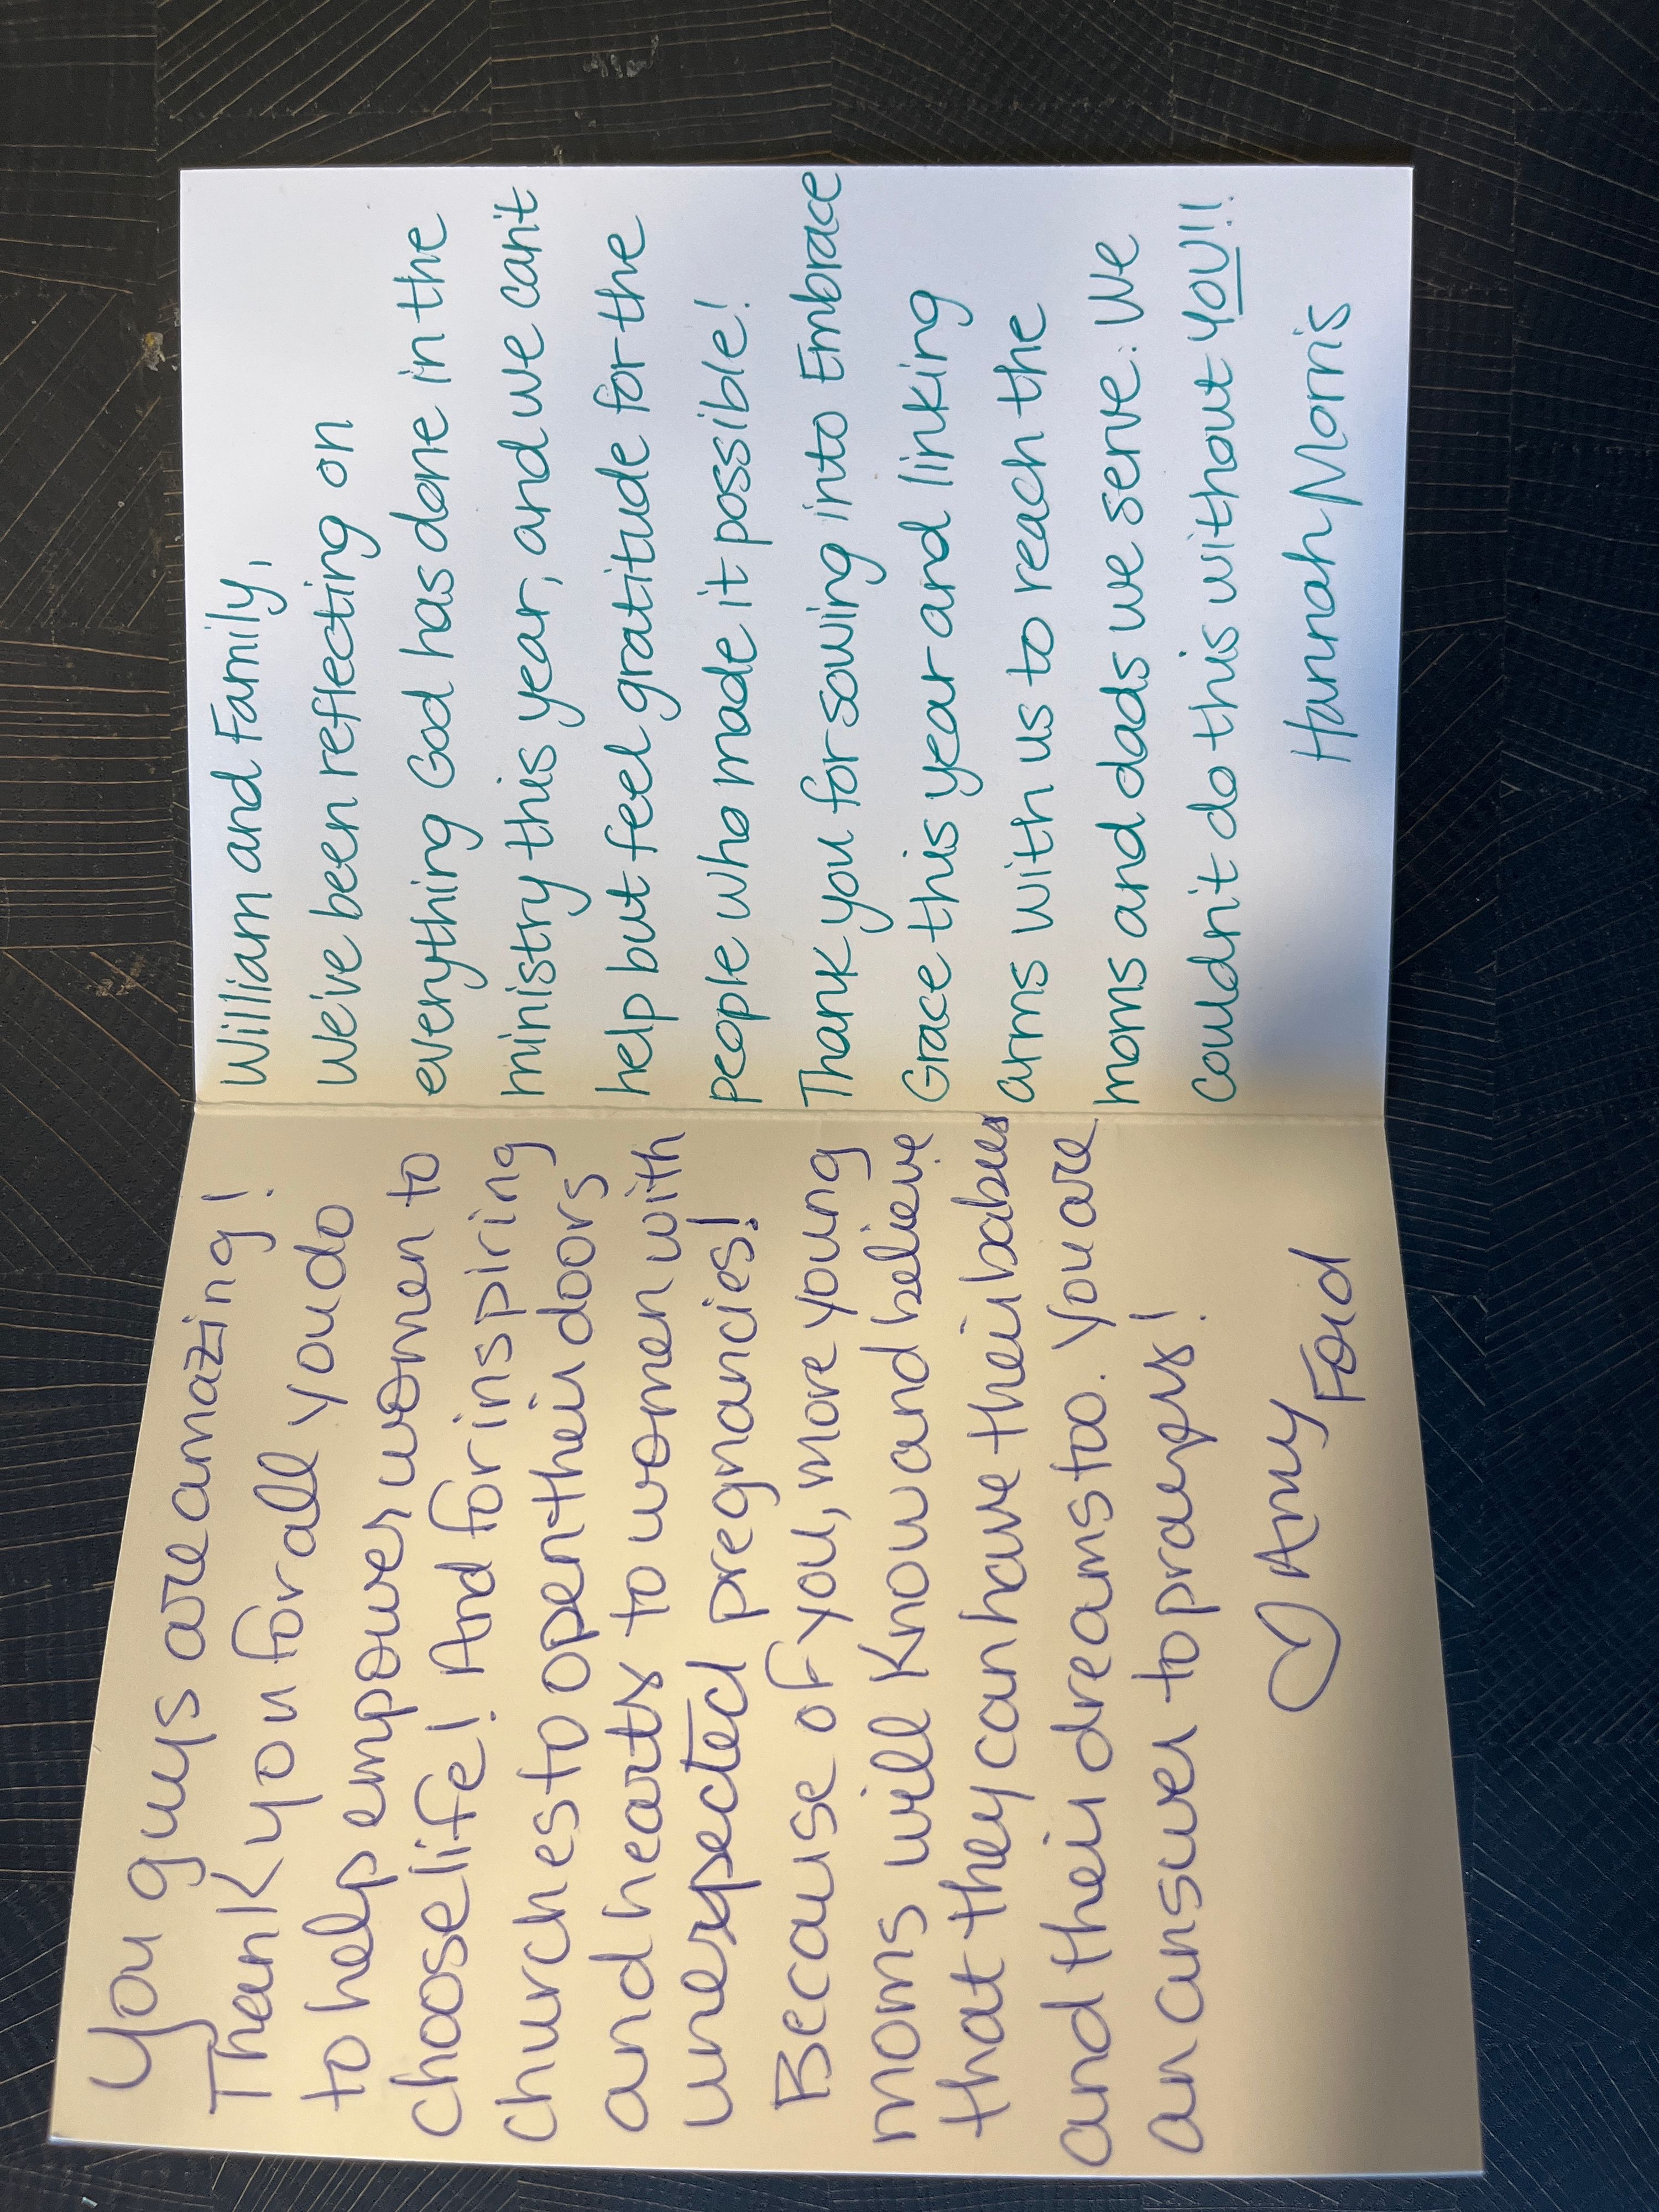 You guys are amazing!
Thank you for all you do
to help empower women to
choose life! And for inspiring
churches to open their doors
and hearts to women with
unexpected pregnancies!
Because of you, more young
moms will know and believe
that they can have their babies
and their dreams too. You are
an answer to prayers!
♡ Amy
Ford
William and Family,
We've been reflecting on
everything God has done in the
ministry this year, and we can't
help but feel gratitude for the
people who made it possible!
Thank you for sowing into Embrace
Grace this year and linking
arms with us to reach the
moms and dads we serve. We
couldn't do this without YOU!!
Hannah Morris